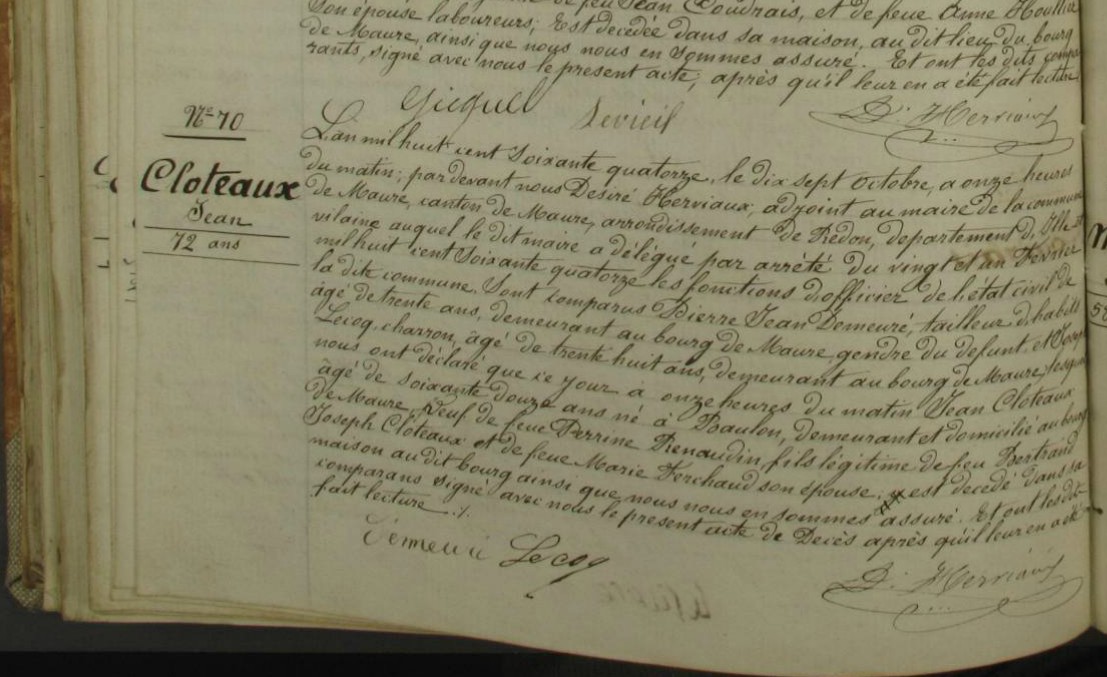 de feu Jean Coudrais, et de feue Anne Houllier
son épouse laboureurs; Est décédée dans sa maison, au dit lieu du bourg
de Maure, ainsi que nous nous en sommes assuré. Et ont les dits compa-
rants, signé avec nous le present acte, après qu'il leur en a été fait lecture
Gicquel D. Herviaux
Nre 70
Cloteaux
Jean
72 ans
L'an mil huit cent soixante quatorze, le dix sept octobre, a onze heures
du matin; par devant nous Desiré Herviaux, adjoint au maire de la commune
de Maure, canton de Maure, arrondissement de Redon, departement d'Ille et
vilaine auquel le dit maire a délégué par arrété du vingt et un Fevrier
mil huit cent soixante quatorze les fonctions d'officier de l'état civil de
la dite commune. Sont comparus Pierre Jean Demeuré, tailleur d'habits
âgé de trente ans, demeurant au bourg de Maure, gendre du defunt, et Joseph
Lecoq, charron, âgé de trente huit ans, demeurant au bourg de Maure, lesquels
nous ont déclaré que ce jour à onze heures du matin Jean Cloteaux
âgé de soixante douze ans né à Baulon, demeurant et domicilié au bourg
de Maure, Veuf de feue Perrine Renaudin, fils légitime de feu Bertrand
Joseph Cloteaux et de feue Marie Ferchaud son épouse; est decedé dans sa
maison au dit bourg ainsi que nous nous en sommes assuré. Et ont les dits
comparans signé avec nous le present acte de Decès après qu'il leur en a été
fait lecture ./.
Demeuré Lecoq D. Herviaux